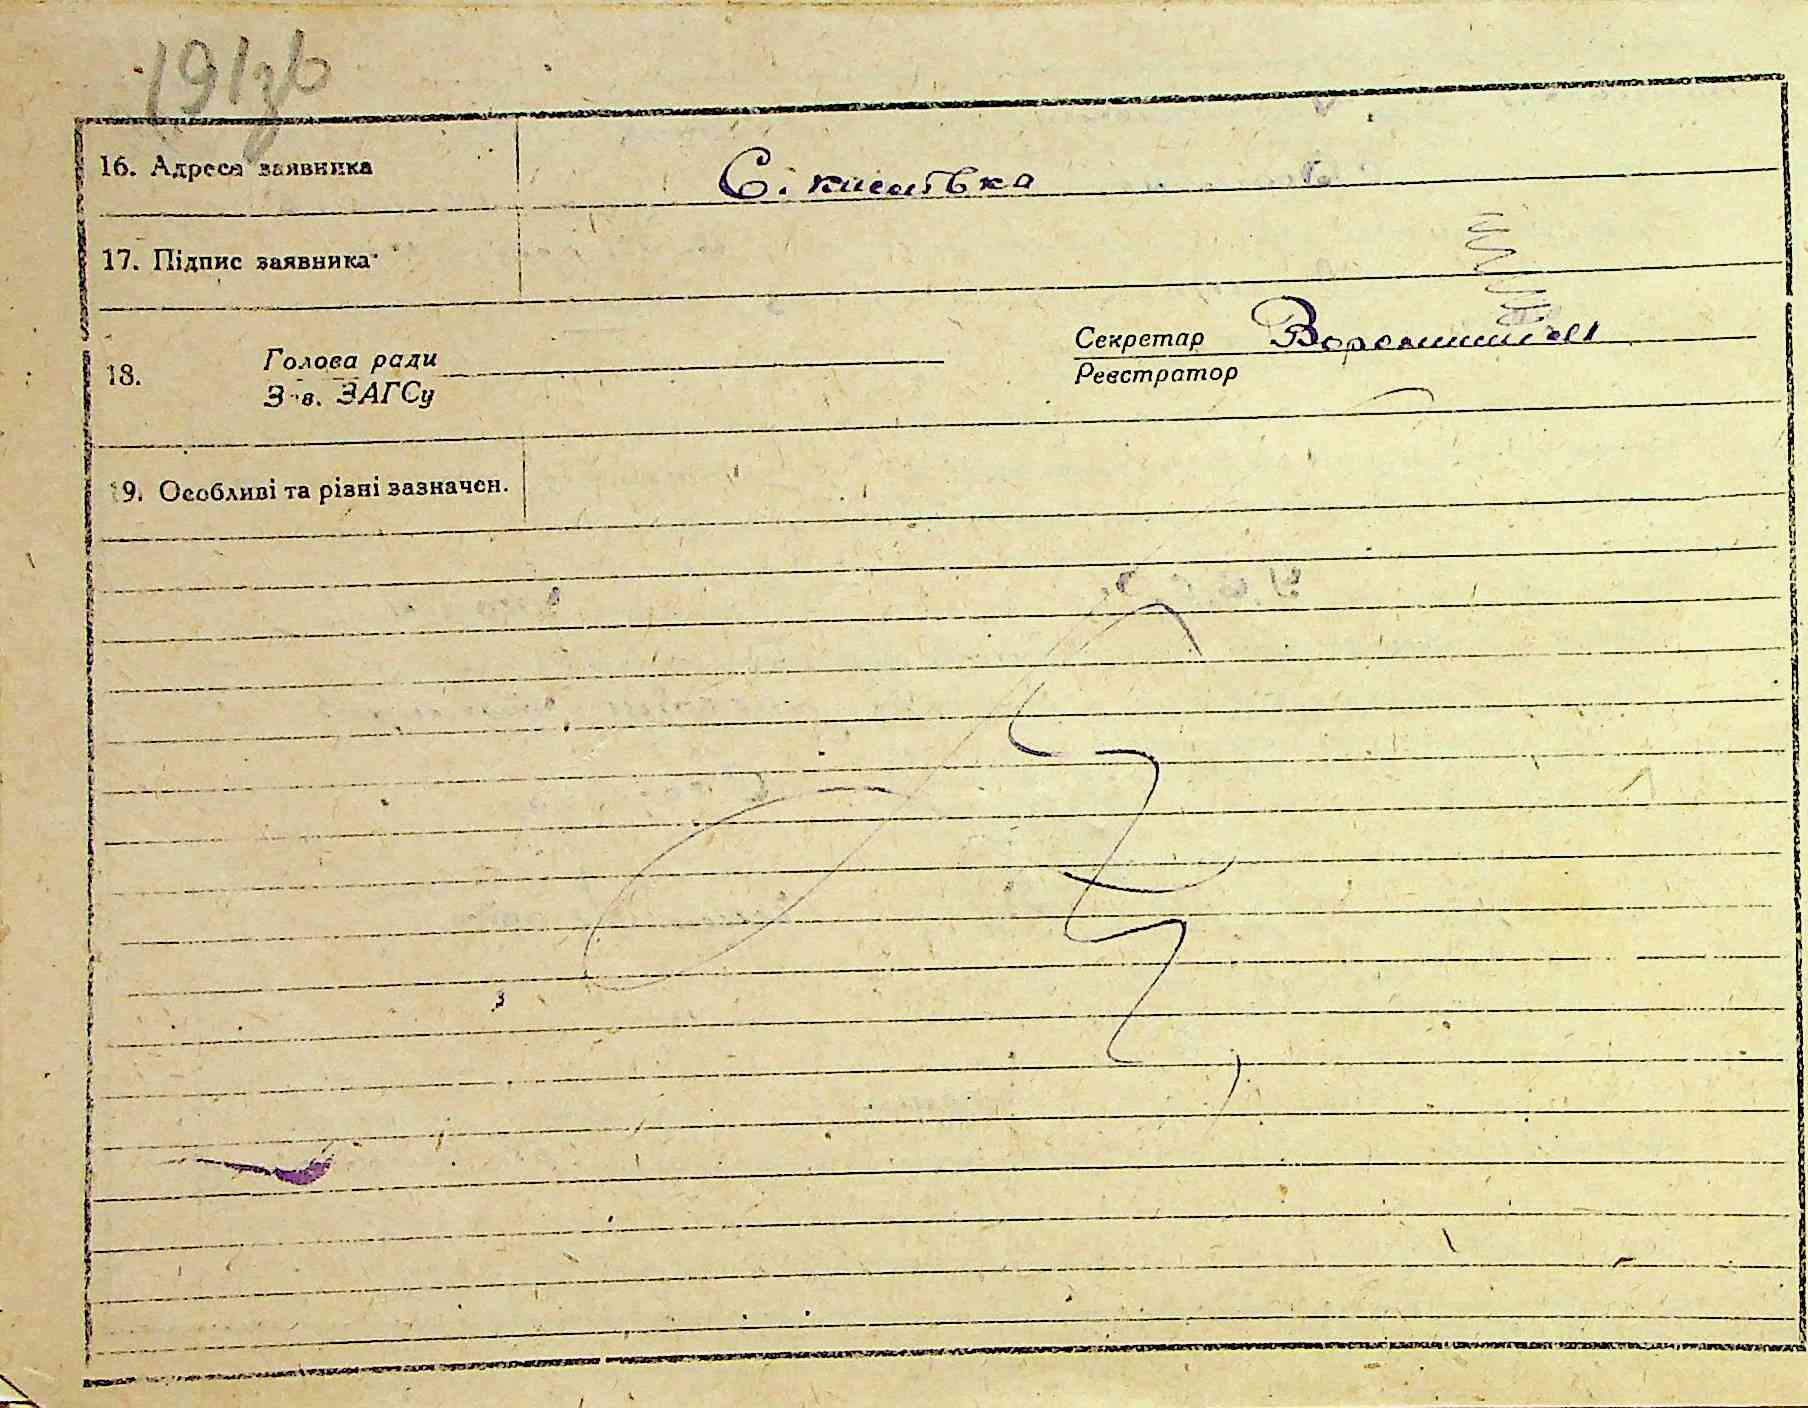 191зв
16. Адреса заявника С. Киселівка
17. Підпис заявника
18. Голова ради Секретар
З-в. ЗАГСу Реєстратор
19. Особливі та різні зазначен.